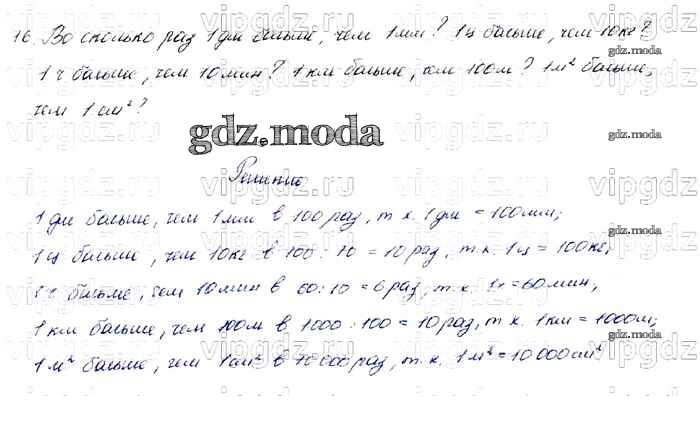 16. Во сколько раз 1дм больше, чем 1мм? 1ц больше, чем 10кг?
1ч больше, чем 10мин? 1км больше, чем 100м? 1м² больше,
чем 1см²?
gdz.moda
Решение
1дм больше, чем 1мм в 100раз, т.к. 1дм = 100мм;
1ц больше, чем 10кг в 100 : 10 = 10раз, т.к. 1ц = 100кг;
1ч больше, чем 10мин в 60 : 10 = 6раз, т.к. 1ч = 60мин;
1км больше, чем 100м в 1000 : 100 = 10раз, т.к. 1км = 1000м;
1м² больше, чем 1см² в 10 000раз, т.к. 1м² = 10 000см²
vipgdz
gdz.moda